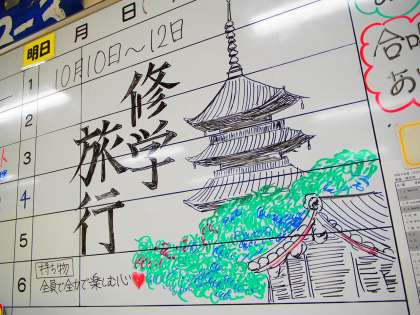 明日 月 日
10月10日〜12日
修学
旅行
1
2
3
4
5
6
持ち物
全員で全力で楽しむ心♥
合唱
あり